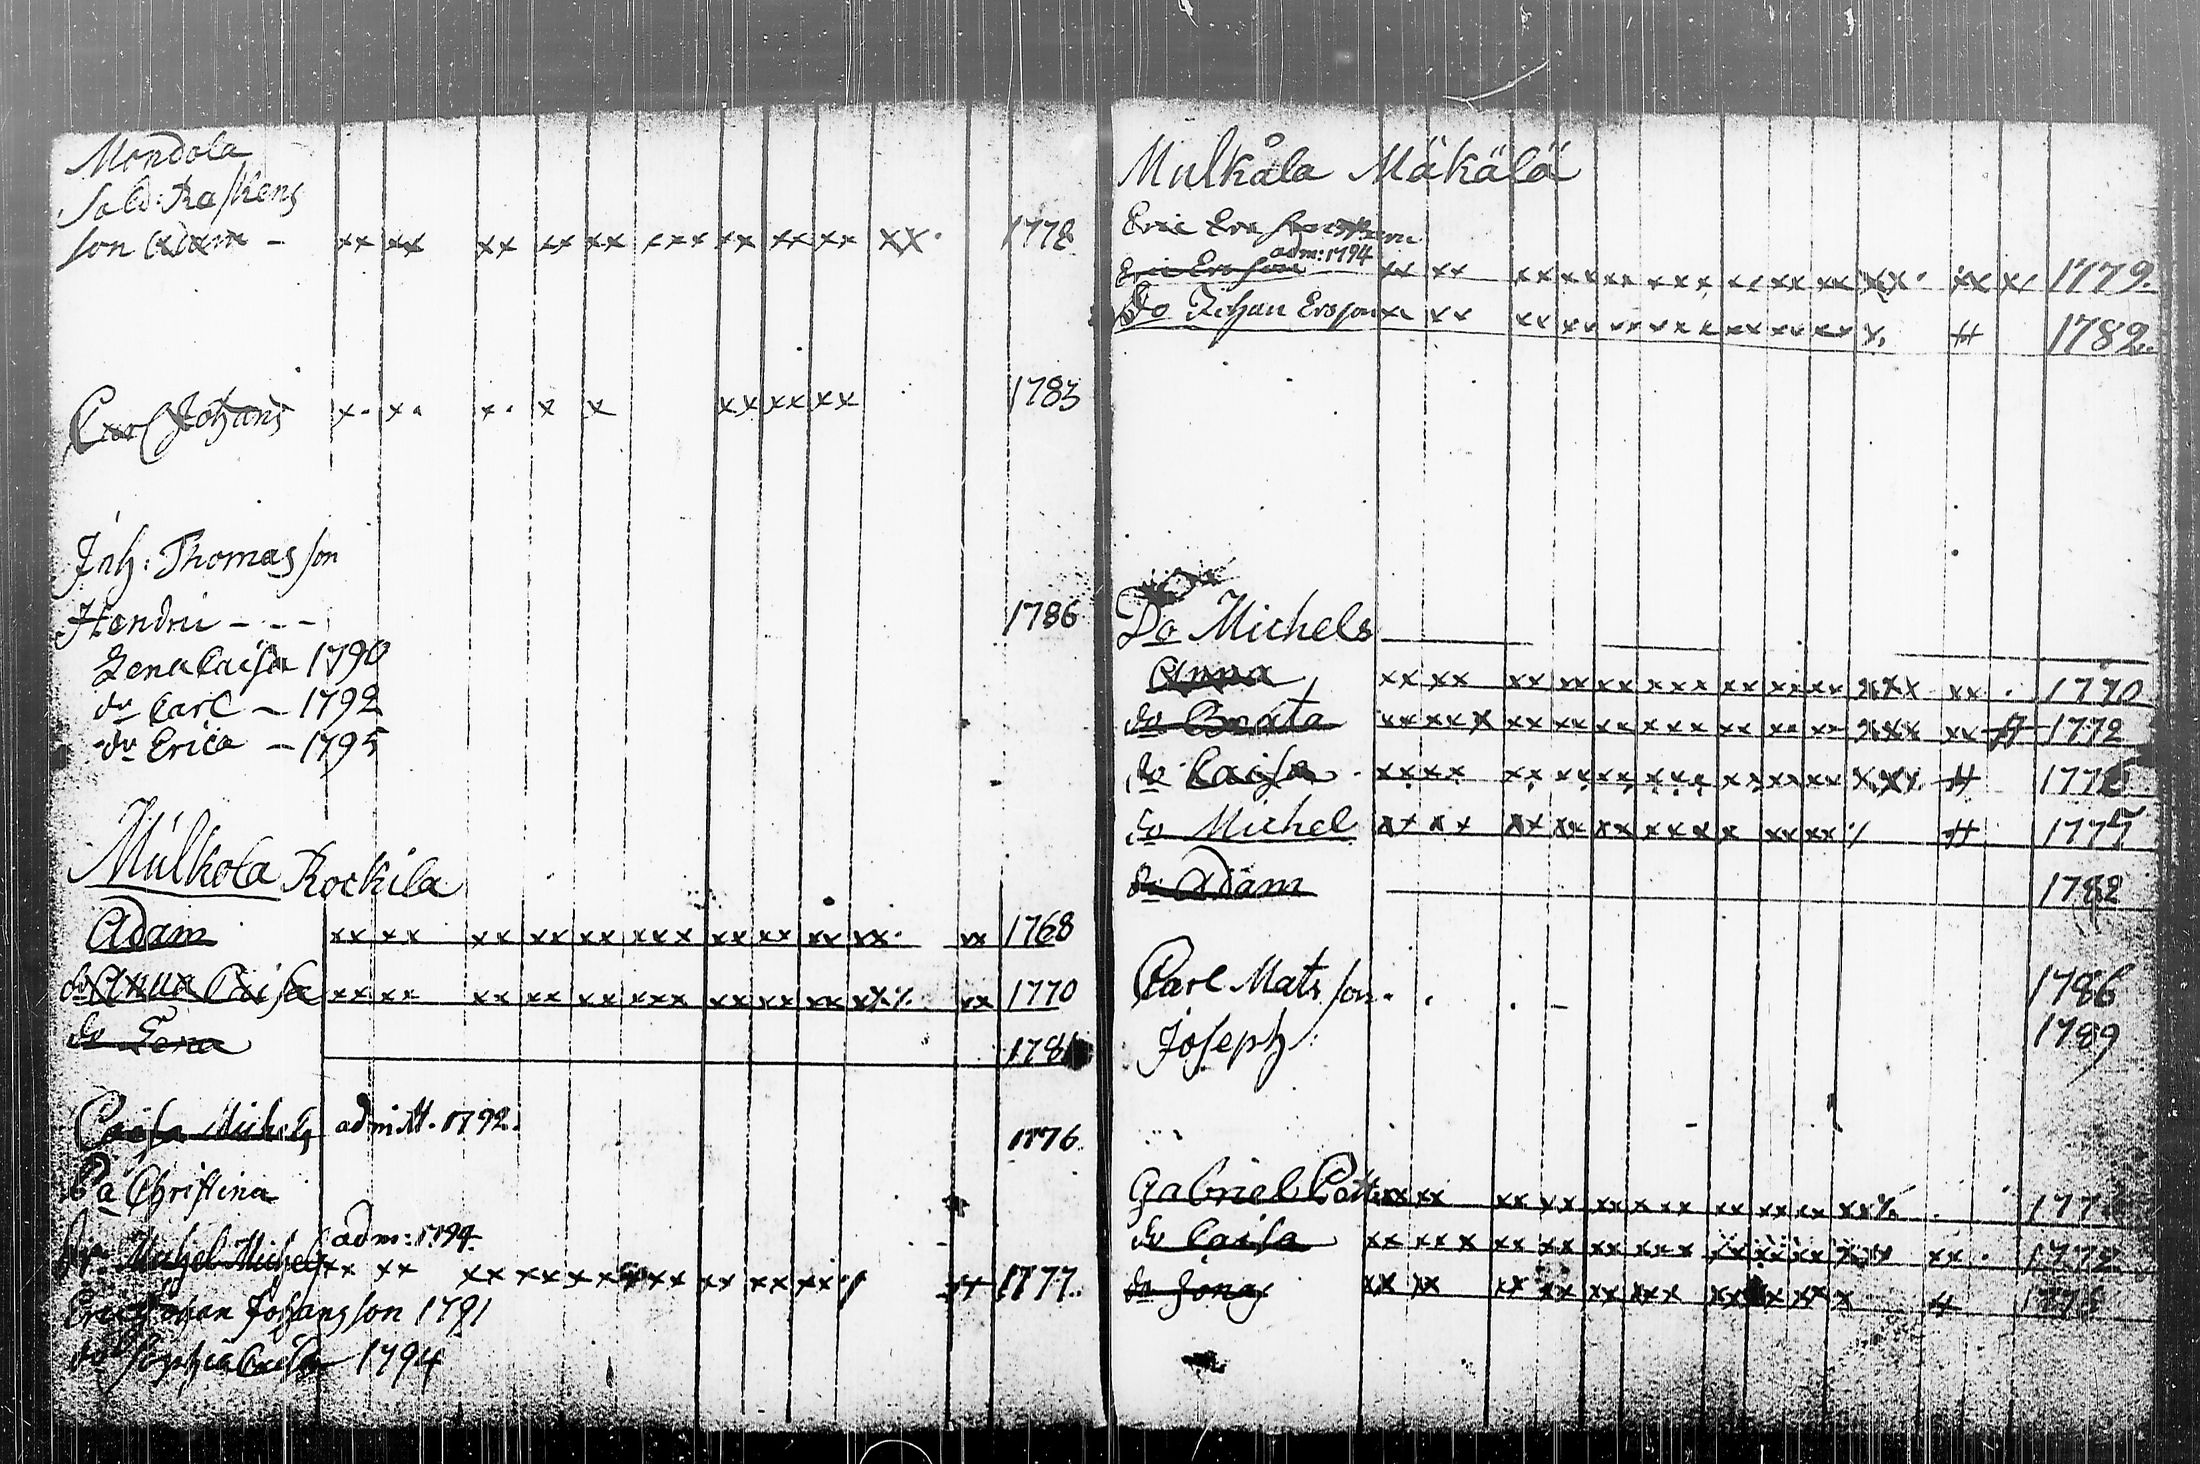 Mondola
Sold: Raskens
son Adam - xx xx xx xx xx xxx xx xx xx xx. 1778
Carl Johans x. x. x. x x xx xx xx 1783
Joh: Thomasson
Hendric - - - 1786
Lena Caisa 1790
do Carl - 1792
do Erica - 1795
Mulkola Rockila
Adam xx xx xx xx xx xxx xx xx xx xx. xx 1768
do Anna Caisa xx xx xx xx xx xxx xx xx xx xx% xx 1770
do Lena 1781
Caisa Michels admitt. 1792. 1776.
Pa Christina
adm: 1794.
Michel Michels xx xx xx xx xx xxx xx xx xx 1777.
Eric Johan Johansson 1791
do Sophia Caisa 1794
Mulkåla Mäkälä
Eric Ersson
adm: 1794
Eric Ersson xx xx xx xx xx xxx xx xx xx xx. xx x 1779.
Do Johan Ersson x xx xx xx xx xxx xx xx xx x. # 1782.
Do Michels
Anna xx xx xx xx xx xxx xx xx xx xxx xx . 1770
do Beata xx xx x xx xx xx xxx xx xx xx xxx xx # 1772
do Caisa xx xx xx xx xx xxx xx xx xx xxx # 177
do Michel xx xx xx xx xx xxx x xx xx % # 1777
do Adam 1782
Carl Matsson 1786
Joseph 1789
Gabriel xx xx xx xx xxx xx xx xx xx% 177
do Caisa xx xx x xx xx xx xxx xx xx xx xxx xx . 1772
do Jonas xx xx xx xx xx xxx xx xx xx x # 177